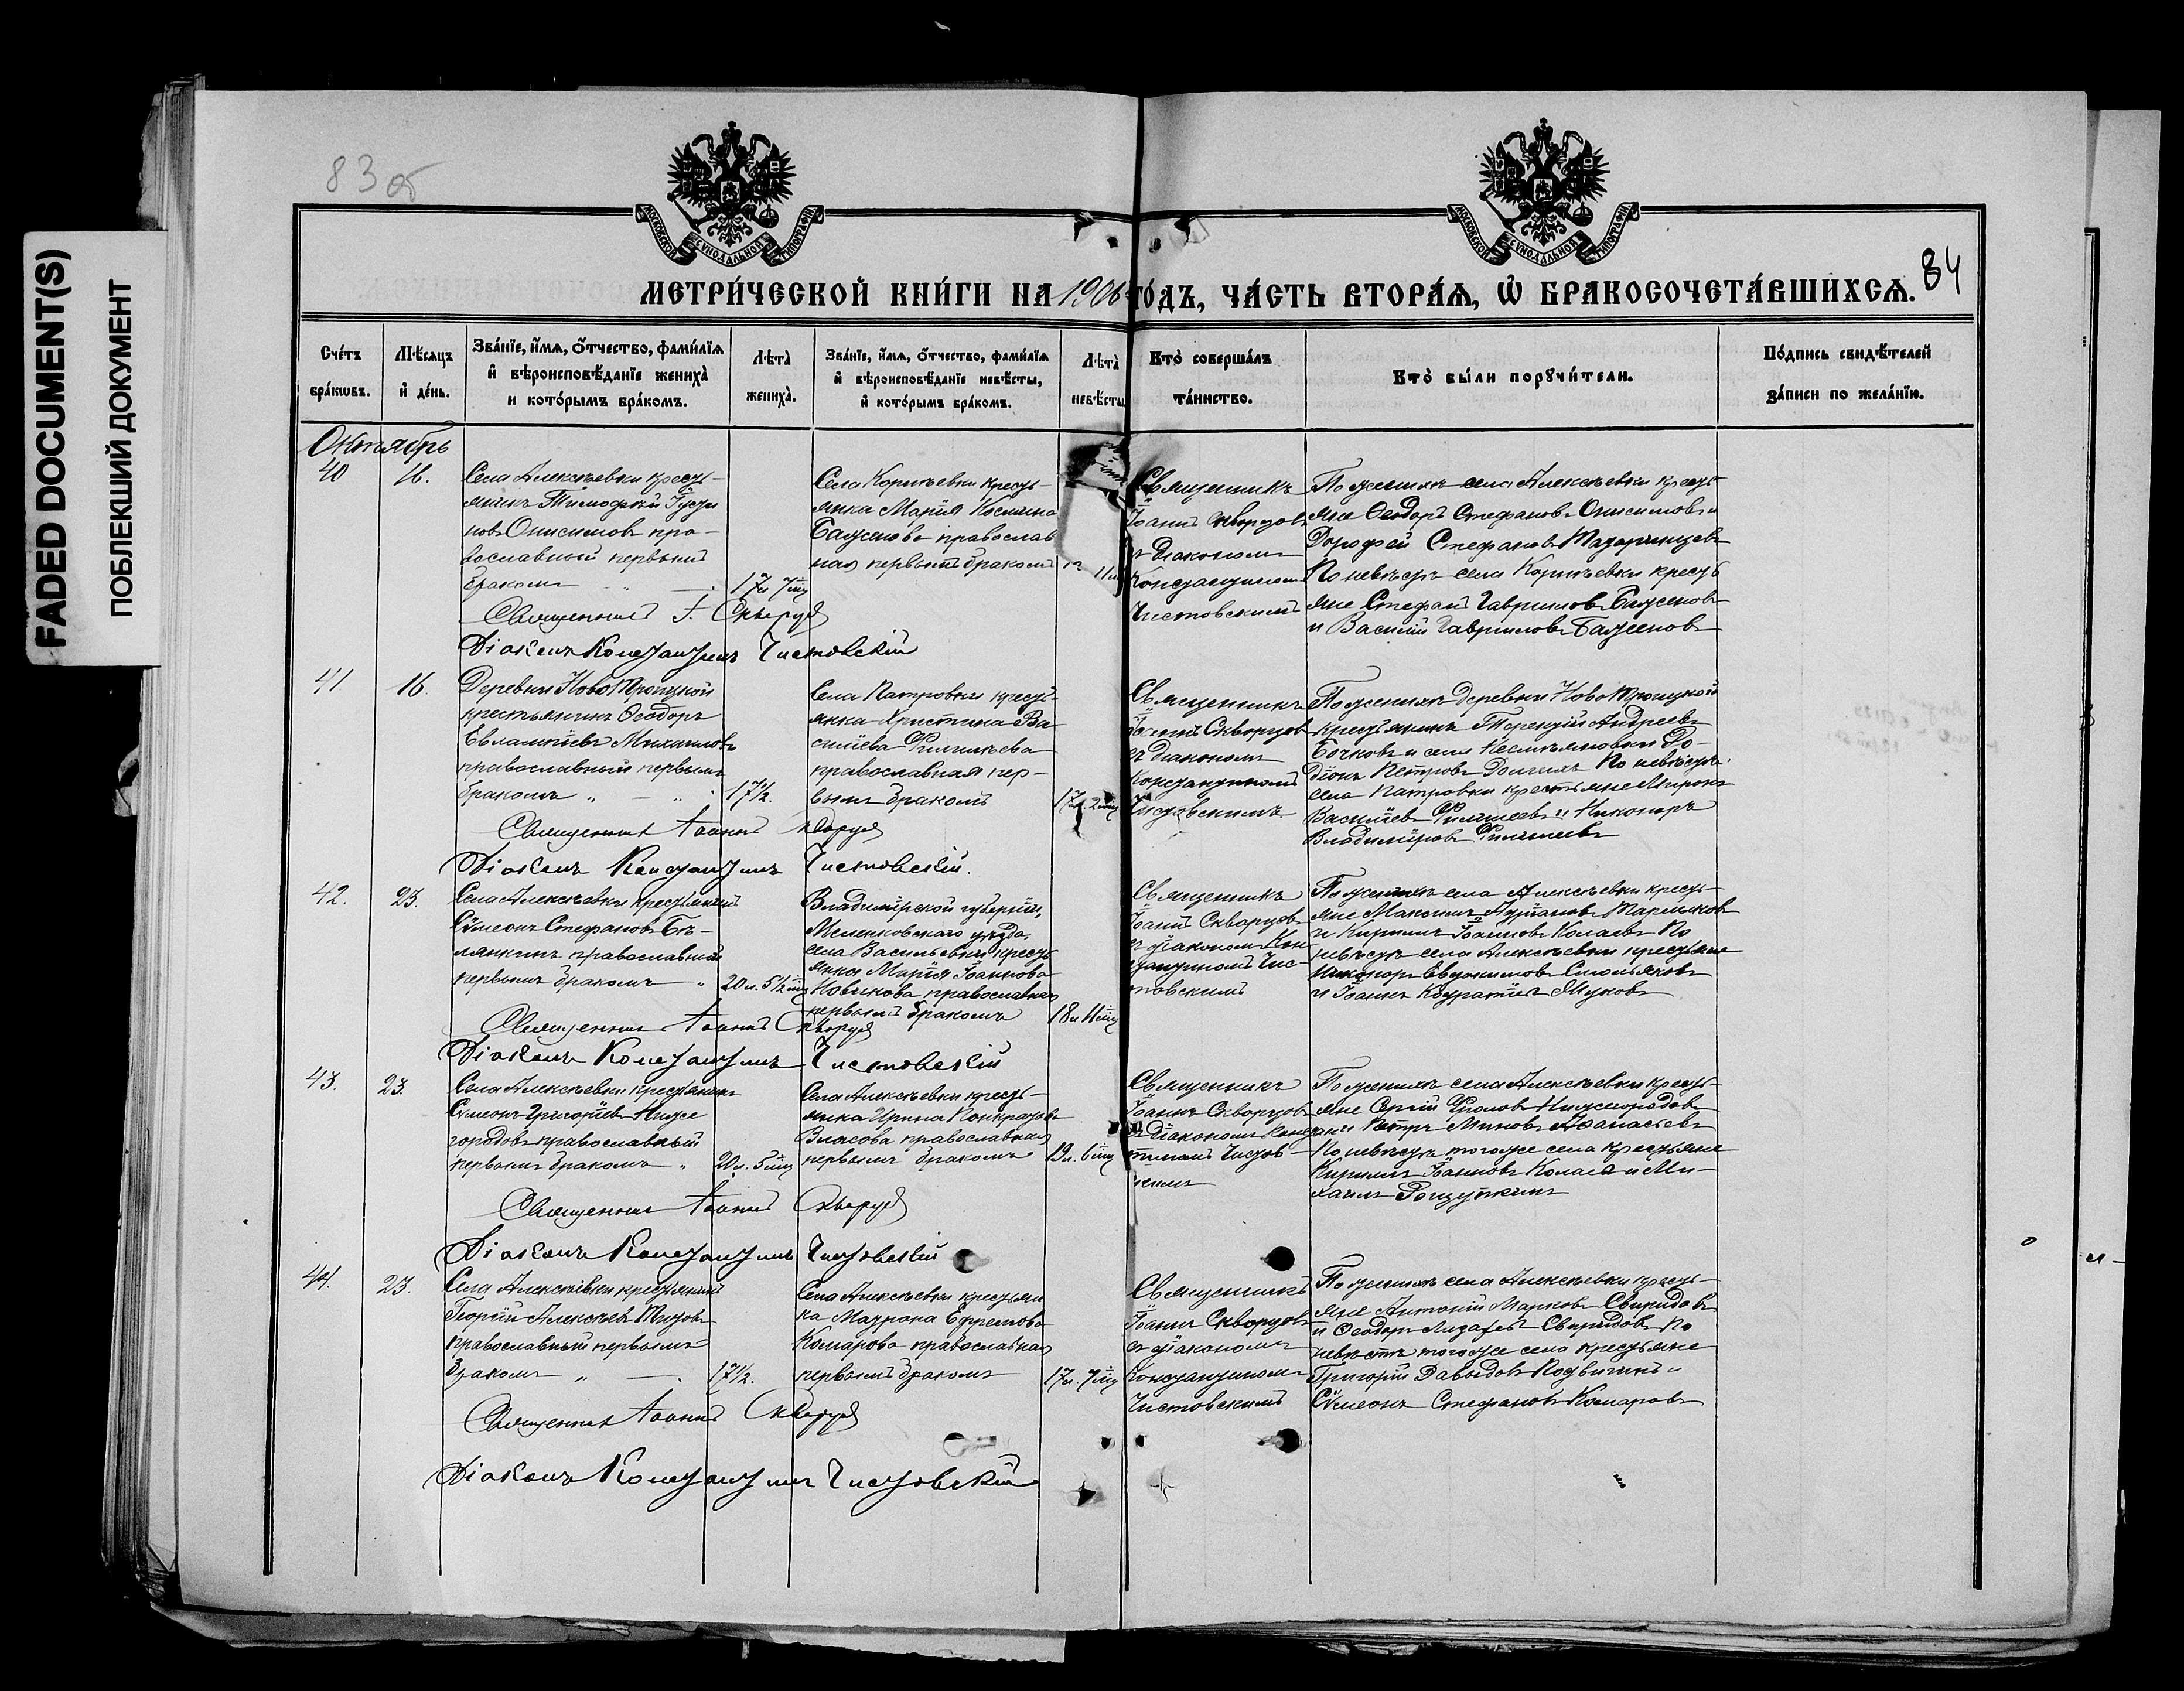 FADED DOCUMENT(S)
ПОБЛЕКШИЙ ДОКУМЕНТ
83 об
МОСКОВСКОЙ СѴНОДАЛЬНОЙ ТИПОГРАФІИ
МОСКОВСКОЙ СѴНОДАЛЬНОЙ ТИПОГРАФІИ
МЕТРИ́ЧЕСКОЙ КНИ́ГИ НА 1906 ГО́ДЪ, ЧА́СТЬ ВТОРА́Я, Ѡ БРАКОСОЧЕТА́ВШИХСЯ.
84
Сче́тъ бра́кѡвъ.
Мѣ́сяцъ и҆ де́нь.
Зва́нїе, и҆́мя, ѻ҆́тчество, фами́лїя и҆ вѣроисповѣ́данїе жениха̀ и кото́рымъ бра́комъ.
Лѣта̀ жениха̀.
Зва́нїе, и҆́мя, ѻ҆́тчество, фами́лїя и҆ вѣроисповѣ́данїе невѣ́сты, и҆ кото́рымъ бра́комъ.
Лѣта̀ невѣ́сты
Кто̀ соверша́лъ та́инство.
Кто̀ бы́ли порꙋчи́тели.
По́дпись свидѣ́телей за́писи по жела́нїю.
Октябрь
40
16.
Села Алексѣевки кресть-
янинъ Тимофей
новъ Онисимовъ пра-
вославный первымъ
бракомъ
17 л 7 мц
Села Кориѣевки кресть-
янка Марія Космина
Баженова православ
ная первымъ бракомъ
11 м
Священникъ
Іоаннъ Скворцовъ
съ Діакономъ
Константиномъ
Чистовскимъ
По женихѣ села Алексѣевки кресть
яне Ѳеодоръ Стефановъ Онисимовъ и
Дорофей Стефановъ
По невѣстѣ села Кориѣевки кресть
яне Стефанъ Гавриловъ Баженовъ
и Василій Гавриловъ Баженовъ
Священникъ І. Скворцов
Діаконъ Константинъ Чистовскій
41
16.
Деревни Ново Троицкой
крестьянинъ Ѳеодоръ
Евлампіевъ Михаиловъ
православный первымъ
бракомъ " — "
17 1/2.
Села Патровки кресть-
янка Христина Ва
силіева
православная пер-
вымъ бракомъ
17 л. 2 мц
Священникъ
Іоаннъ Скворцовъ
съ діакономъ
Константиномъ
Чистовскимъ
По женихѣ деревни Ново Троицкой
крестьянинъ Терентій Андреевъ
Бочковъ и села
діонъ Петровъ Долгихъ По невѣстѣ
села Патровки крестьяне Миронъ
Василіевъ и Никоноръ
Владиміровъ
Священникъ Іоаннъ Скворцов
Діаконъ Константинъ Чистовскій.
42.
23.
Села Алексѣевки крестьянинъ
Сѵмеонъ Стефановъ Бѣ-
лянкинъ православный
первымъ бракомъ "
20 л. 5 1/2 мц
Владимірской губерніи,
Меленковскаго уѣзда,
села Васильевки кресть
янка Марія Іоаннова
Новикова православная
первымъ бракомъ
18 л 11 мц
Священникъ
Іоаннъ Скворцовъ
съ діакономъ Кон
стантиномъ Чис-
товскимъ
По женихѣ села Алексѣевки кресть-
яне Максимъ
и Кириллъ Іоанновъ Колаевъ По
невѣстѣ села Алексѣевки крестьяне
Никаноръ Евдокимовъ Смольяковъ
и Іоаннъ Жуковъ
Священникъ Іоаннъ Скворцов
Діаконъ Константинъ Чистовскій
43.
23.
Села Алексѣевки крестьянинъ
Сѵмеонъ Григоріевъ Ниже
городовъ православный
первымъ бракомъ "
20 л. 5 мц
Села Алексѣевки кресть-
янка Ирина Понкратова
Власова православная
первымъ бракомъ
19 л. 6 мц
Священникъ
Іоаннъ Скворцовъ
съ Діакономъ Констан
тиномъ Чистов-
скимъ
По женихѣ села Алексѣевки кресть-
яне Сергій Фроловъ Нижегородовъ
и Петръ Миновъ Аѳанасьевъ
По невѣстѣ того же села крестьяне
Кириллъ Іоанновъ Колаевъ и Ми-
хаилъ Рощупкинъ
Священникъ Іоаннъ Скворцов
Діаконъ Константинъ Чистовскій
44.
23.
Села Алексѣевки крестьянинъ
Георгій Алексѣевъ
православный первымъ
бракомъ " —
17 1/2.
Села Алексѣевки крестьян
ка Матрона Ефремова
Комарова православная
первымъ бракомъ
17 л. 7 мц
Священникъ
Іоаннъ Скворцовъ
съ діакономъ
Константиномъ
Чистовскимъ
По женихѣ села Алексѣевки кресть-
яне Антоній Марковъ Свиридовъ
и Ѳеодоръ Свиридовъ По
невѣстѣ того же села крестьяне
Григорій Давыдовъ и
Сѵмеонъ Стефановъ Комаровъ
Священникъ Іоаннъ Скворцов
Діаконъ Константинъ Чистовскій